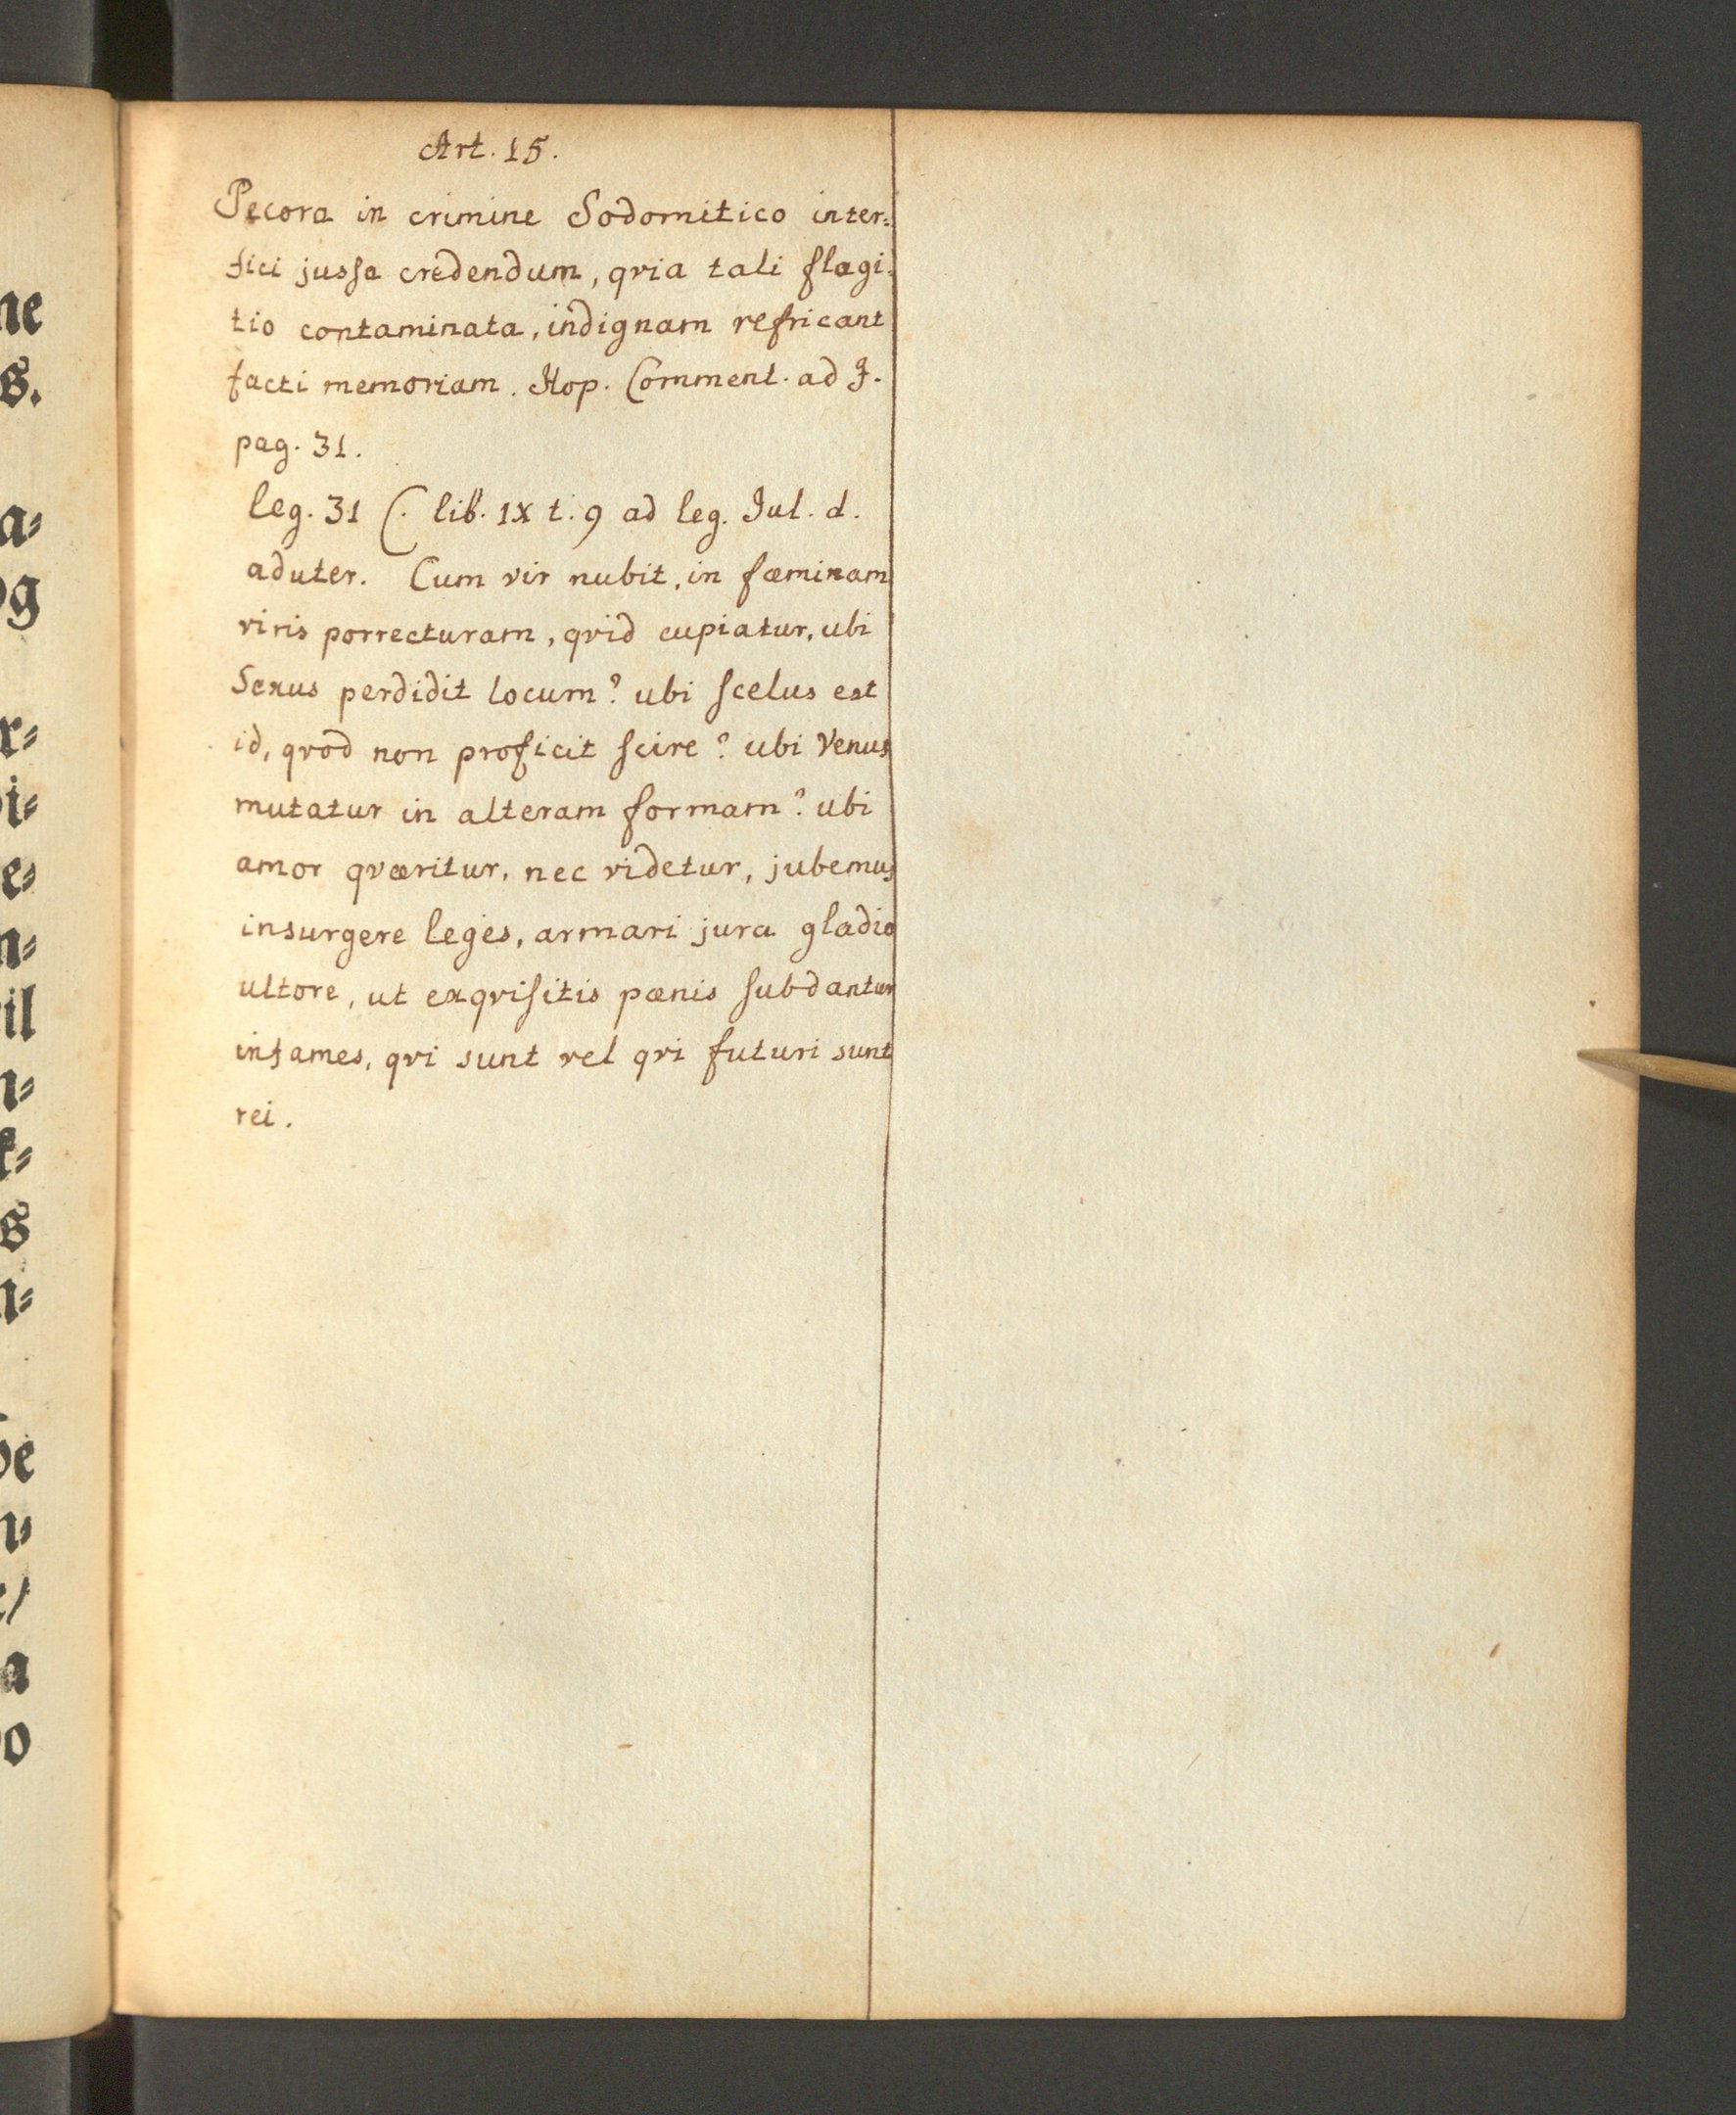 Art. 15.
Pecora in crimine Sodomitico inter=
fici jussa credendum, qvia tali flagi=
tio contaminata, indignam refricant
facti memoriam. Hop. Comment. ad J.
pag. 31.
leg. 31 C. lib. IX t. 9 ad leg. Jul. d.
aduter. Cum vir nubit, in fæminam
viris porrecturam, qvid cupiatur, ubi
Sexus perdidit locum? ubi scelus est
id, qvod non proficit scire? ubi Venus
mutatur in alteram formam? ubi
amor qværitur, nec videtur, jubemus
insurgere leges, armari jura gladio
ultore, ut exqvisitis pænis subdantur
infames, qvi sunt vel qvi futuri sunt
rei.
ne
s.
a=
og
r=
i=
e=
n=
il
n=
k=
s
n=
de
n=
e/
a
o